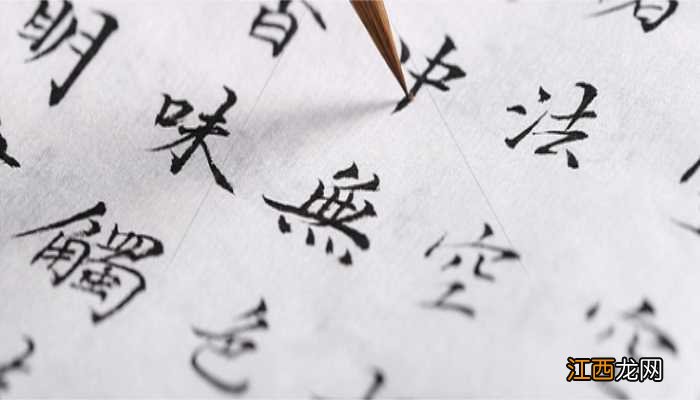 空
法空
中無色
香味觸
明
江西龙网